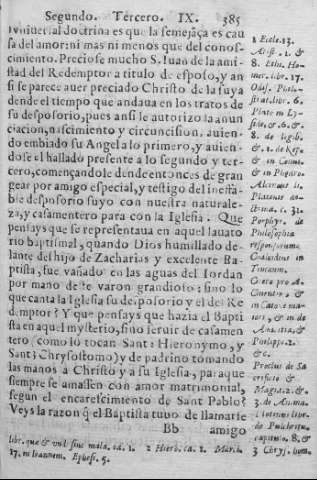 Segundo. Tercero. IX. 385
vniuersal doctrina es que la semejãça es cau
sa del amor: ni mas ni menos que del conos-
cimiento. Preciose mucho S. Iuan de la ami-
stad del Redemptor a titulo de esposo, y an
si se parece auer preciado Christo de la suya
dende el tiempo que andaua en los tratos de
su desposorio, pues ansi le autorizo la anun
ciacion, nascimiento y circuncision, auien-
do embiado su Angel a lo primero, y auien-
dose el hallado presente a lo segundo y ter-
cero, començandole dende entonces de gran
gear por amigo especial, y testigo del inefa-
ble desposorio suyo con nuestra naturale-
za, y casamentero para con la Iglesia. Que
pensays que se representaua en aquel lauato
rio baptismal, quando Dios humillado de-
lante del hijo de Zacharias y excelente Ba-
ptista, fue vañado en las aguas del Iordan
por mano deste varon grandioso: sino lo
que canta la Iglesia su desposorio y el del Re
demptor? Y que pensays que hazia el Bapti
sta en aquel mysterio, sino seruir de casamen
tero (como lo tocan Sant Hieronymo, y
Sant Chrysostomo) y de padrino tomando
las manos a Christo y a su Iglesia, para que
siempre se amassen con amor matrimonial,
segun el encarescimiento de Sant Pablo?
Veys la razon q̃ el Baptista tubo de llamarse
Bb amigo
1 Eccle. 13.
Arist. 1. &
8. Ethi. Ho-
mer. libr. 17.
Odys. Philo-
strat. libr. 6.
Plato in Ly-
side, & 6. &
8. de legib.
& 1. de Rep.
& in Conui.
& in Phædro.
Alcinous li.
Platonis
c. 32.
Porphyr. de
Philosophia
responsorum
Chalcidius in
Timæum.
Cicero pro A.
Cluentio &
in Catone ma
iori, & in de
Amicitia, &
Philipp. 2.
&c.
Proclus de Sa
crificio &
Magia. 2. &
3. de Anima.
libr. que & vnl sine mala. ca. 1. 2 Hiero. ca. 2. Mar. 1.
17. in Ioannem. Ephes. 5.
de Pulchroque
capitulo. 8. &
3 Chrys. hom.